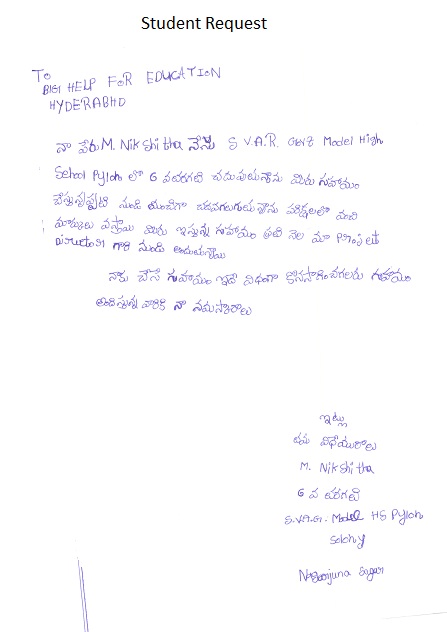 Student Request
To
BIGI HELP FOR EDUCATION
HYDERABHD
నా పేరు M. Nikshitha నేను S V.A.R. Model High
School Pylon లో 6 వ తరగతి చదువుతున్నాను మీరు సహాయం
చేస్తున్నప్పటి నుండి మంచిగా చదవగలుగుతున్నాను పరీక్షలలో మంచి
మార్కులు వస్తాయి మీరు ఇస్తున్న సహాయం ప్రతి నెల మా
గారి నుండి అందుతున్నాయి
నాకు చేసే సహాయం ఇదే విధంగా కొనసాగించగలరు సహాయం
అందిస్తున్న వారికి నా నమస్కారాలు
ఇట్లు
తమ విధేయురాలు
M. Nikshitha
6 వ తరగతి
Model HS Pylon
Colony
Nagarjuna Sagar